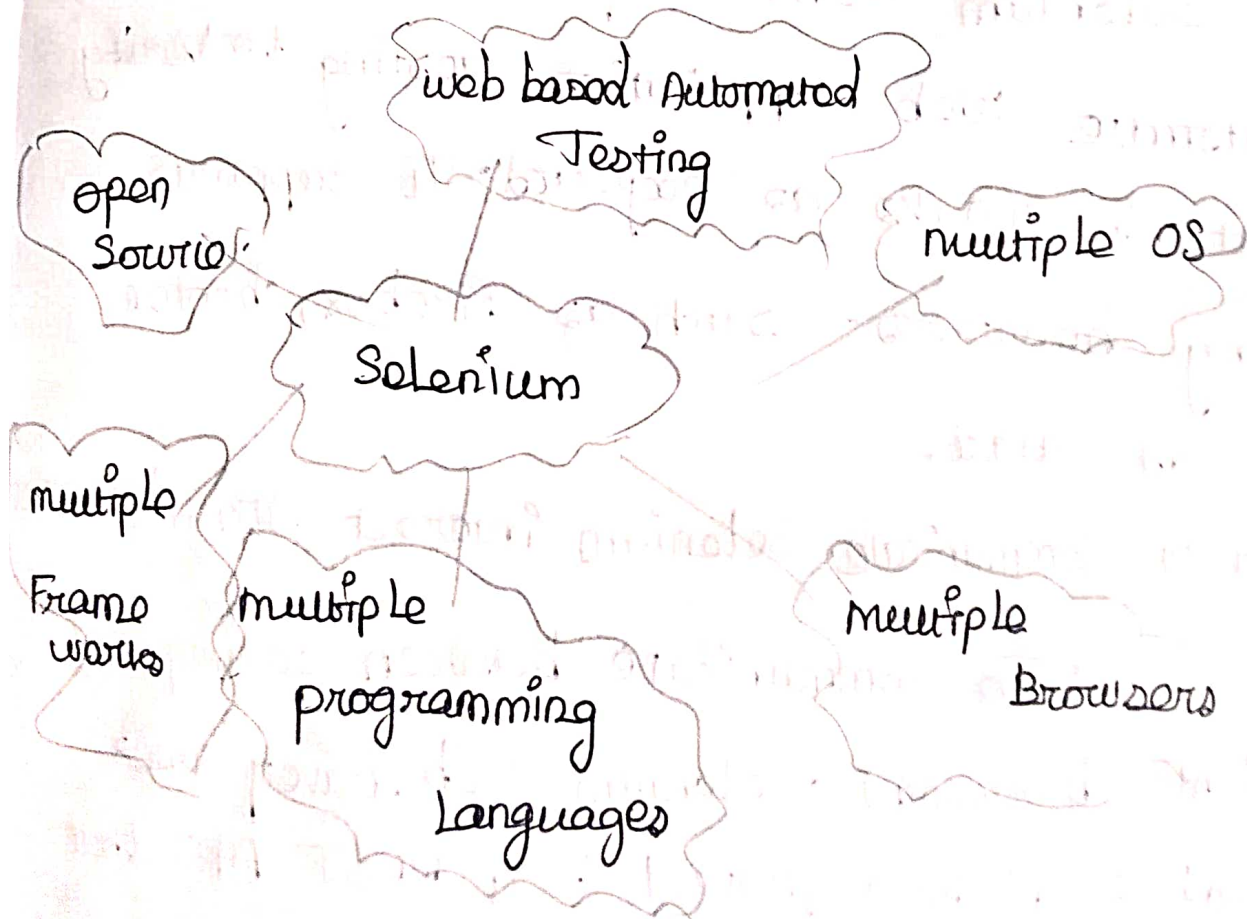 web based Automated
Testing
open
Source
multiple OS
Selenium
multiple
Frame
works
multiple
programming
Languages
multiple
Browsers